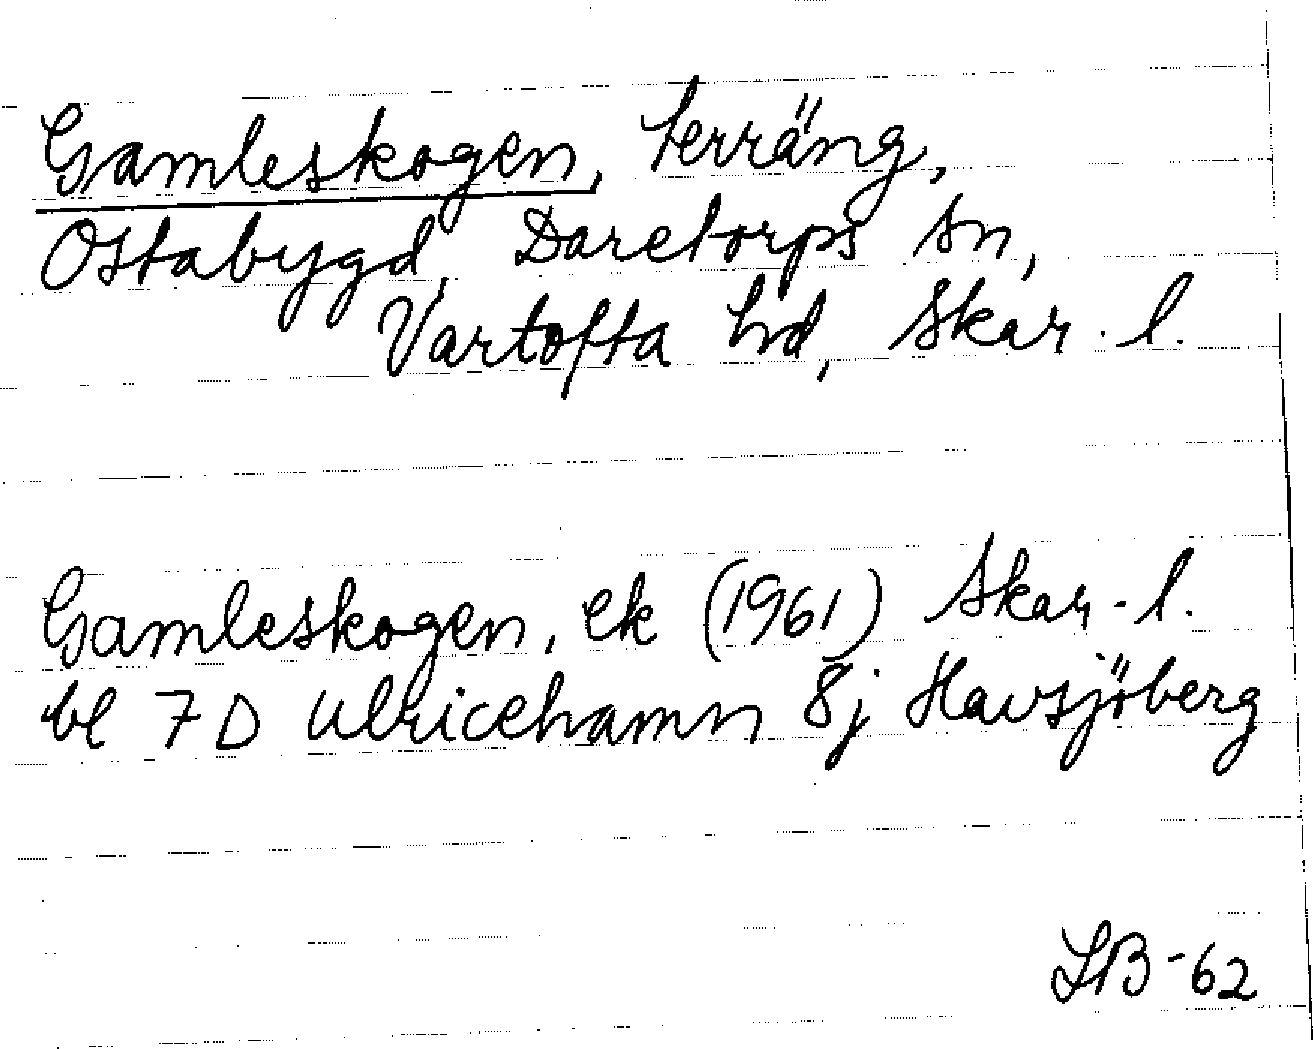 Gamleskogen, terräng,
Ostabygd, Daretorps sn,
Vartofta hd, Skar. l.
Gamleskogen, ek (1961) Skar. l.
bl 7 D Ulricehamn 8j Havsjöberg
LB-62